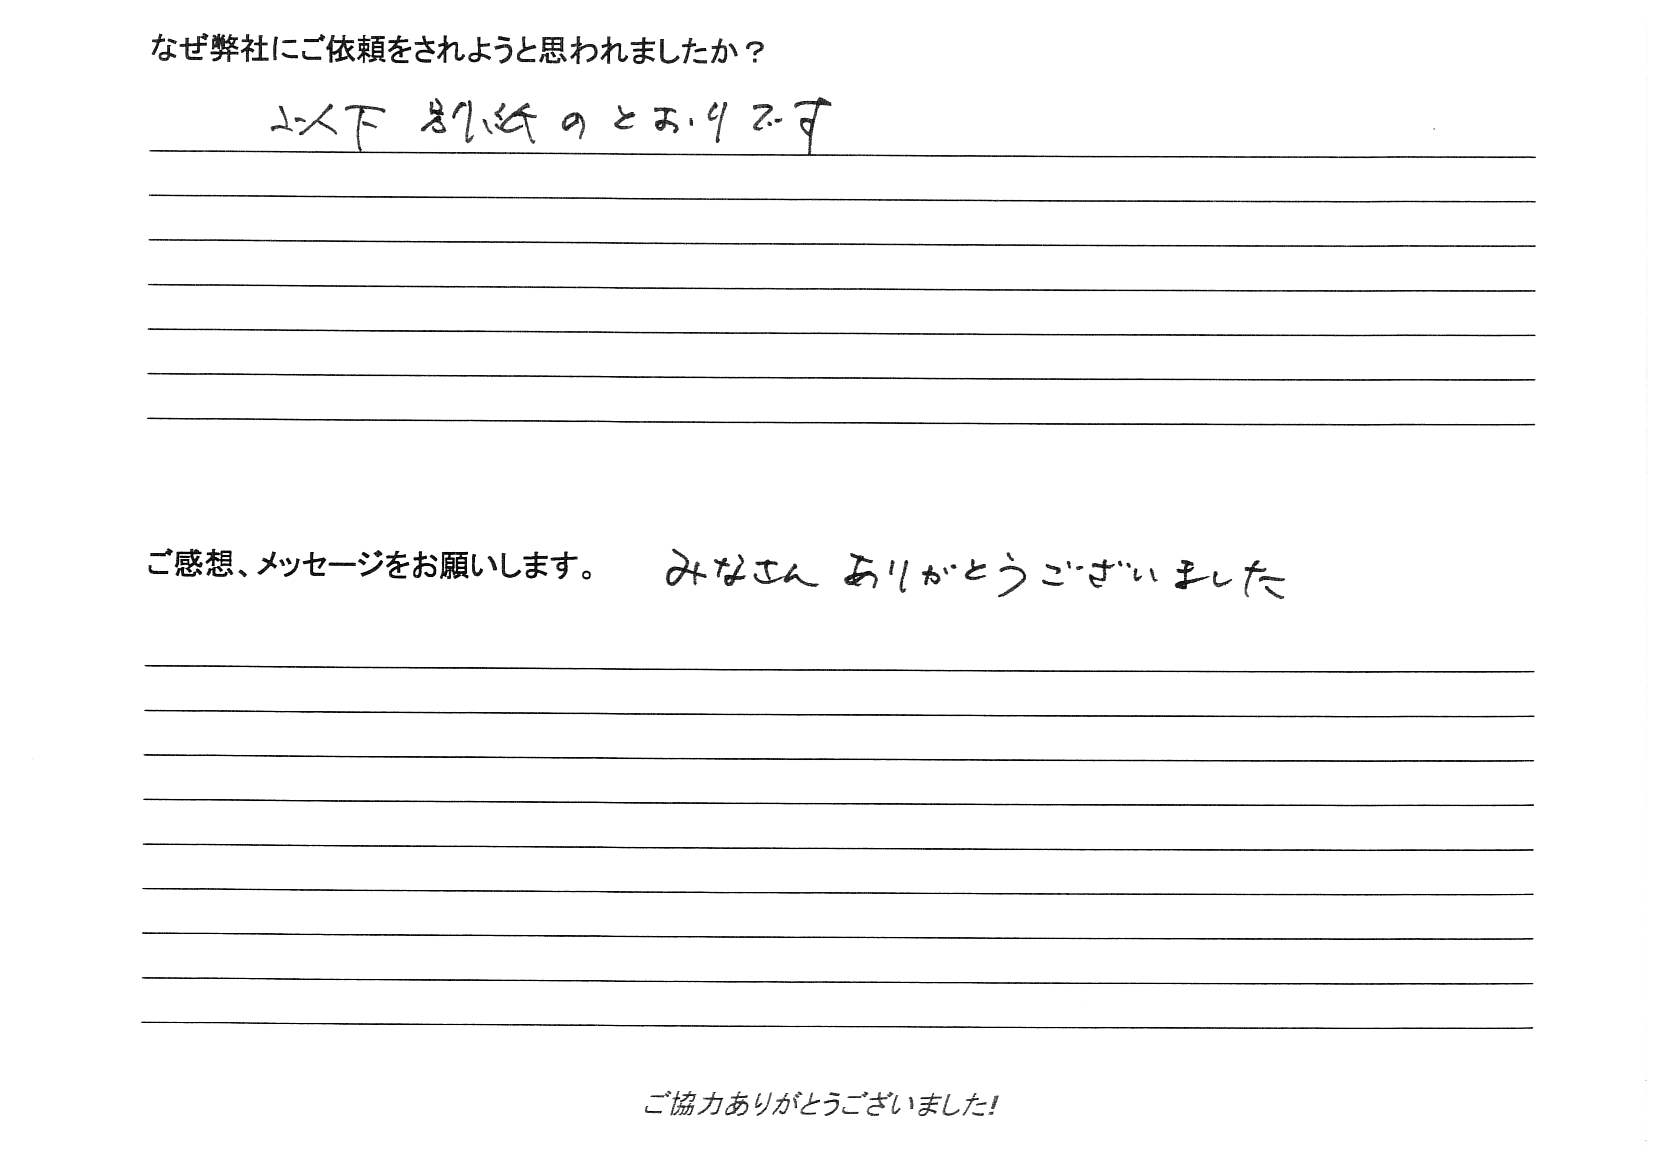 なぜ弊社にご依頼をされようと思われましたか？
以下 別紙のとおりです
ご感想、メッセージをお願いします。 みなさん ありがとうございました
ご協力ありがとうございました!